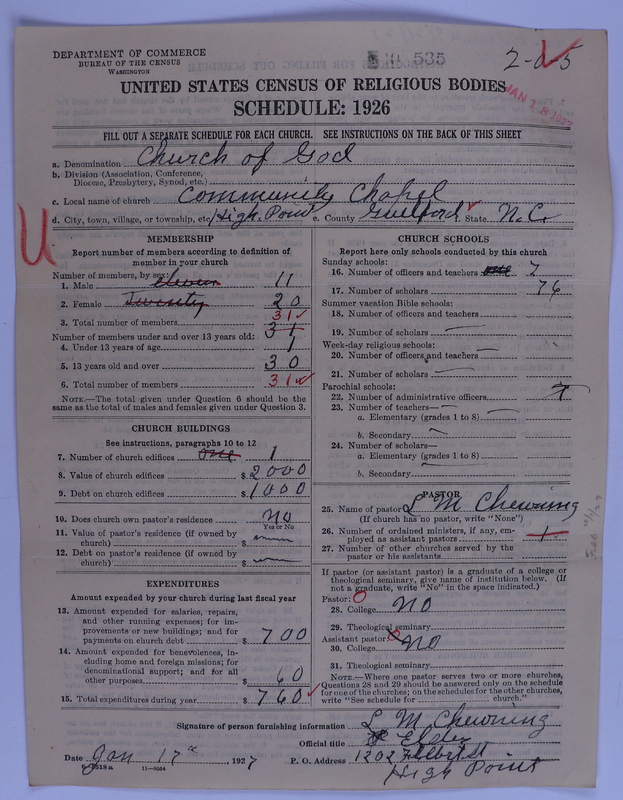 DEPARTMENT OF COMMERCE
BUREAU OF THE CENSUS
WASHINGTON
535
2-0-5
UNITED STATES CENSUS OF RELIGIOUS BODIES
JAN 18 1927
SCHEDULE: 1926
FILL OUT A SEPARATE SCHEDULE FOR EACH CHURCH. SEE INSTRUCTIONS ON THE BACK OF THIS SHEET
a. Denomination Church of God
b. Division (Association, Conference,
Diocese, Presbytery, Synod, etc.)
c. Local name of church Community Chapel
d. City, town, village, or township, etc. High Point e. County Guilford f. State N.C.
U
MEMBERSHIP
Report number of members according to definition of
member in your church
Number of members, by sex:
1. Male eleven 11
2. Female Twenty 20
31
3. Total number of members 31
Number of members under and over 13 years old:
4. Under 13 years of age 1
5. 13 years old and over 30
6. Total number of members 31
NOTE.—The total given under Question 6 should be
same as the total of males and females given under Question 3.
CHURCH BUILDINGS
See instructions, paragraphs 10 to 12
7. Number of church edifices one 1
8. Value of church edifices $ 2000
9. Debt on church edifices $ 1000
10. Does church own pastor's residence No
Yes or No
11. Value of pastor's residence (if owned by
church) $
12. Debt on pastor's residence (if owned by
church) $
EXPENDITURES
Amount expended by your church during last fiscal year
13. Amount expended for salaries, repairs,
and other running expenses; for im-
provements or new buildings; and for
payments on church debt $ 700
14. Amount expended for benevolences, in-
cluding home and foreign missions; for
denominational support; and for all
other purposes $ 60
15. Total expenditures during year $ 760
CHURCH SCHOOLS
Report here only schools conducted by this church
Sunday schools:
16. Number of officers and teachers one 7
17. Number of scholars 76
Summer vacation Bible schools:
18. Number of officers and teachers
19. Number of scholars
Week-day religious schools:
20. Number of officers and teachers
21. Number of scholars
Parochial schools:
22. Number of administrative officers
23. Number of teachers—
a. Elementary (grades 1 to 8)
b. Secondary
24. Number of scholars—
a. Elementary (grades 1 to 8)
b. Secondary
PASTOR
25. Name of pastor L M Chewning
(If church has no pastor, write "None")
26. Number of ordained ministers, if any, em-
ployed as assistant pastors 1
27. Number of other churches served by the
pastor or his assistants
If pastor (or assistant pastor) is a graduate of a college or
theological seminary, give name of institution below. (If
not a graduate, write "No" in the space indicated.)
Pastor:
28. College No
29. Theological seminary
Assistant pastor:
30. College No
31. Theological seminary
NOTE.—Where one pastor serves two or more churches,
Questions 28 and 29 should be answered only on the schedule
for one of the churches; on the schedules for the other churches,
write "See schedule for church."
Signature of person furnishing information L M Chewning
Official title Elder
Date Jan 17th, 1927 P. O. Address 1202
High Point
11—9564